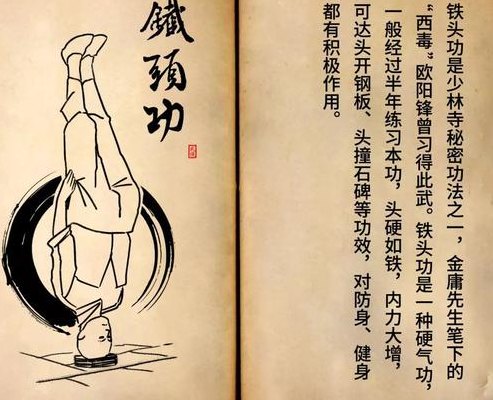 鐵頭功
铁头功是少林寺秘密功法之一，金庸先生笔下的
“西毒”欧阳锋曾习得此武。铁头功是一种硬气功，
一般经过半年练习本功，头硬如铁，内力大增，
可达头开钢板、头撞石碑等功效，对防身、健身
都有积极作用。